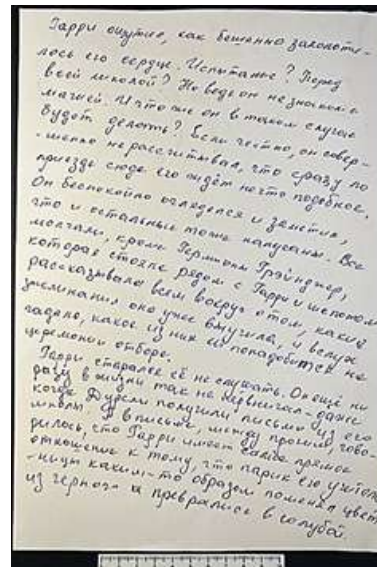 Гарри ощутил, как бешенно заколоти-
лось его сердце. Испытание? Перед
всей школой? Но ведь он не знаком с
магией. И что же он в таком случае
будет делать? Если честно, он совер-
-шенно не рассчитывал, что сразу по
приезде сюда его ждёт нечто подобное.
Он беспокойно огляделся и заметил,
что и остальные тоже напуганы. Все
молчали, кроме Гермионы Грэйнджер,
которая стояла рядом с Гарри и шепотом
рассказывала всем вокруг о том, какие
заклинания она уже выучила, и вслух
гадала, какое из них ей понадобится на
церемонии отбора.
Гарри старался её не слушать. Он ещё ни
разу в жизни так не нервничал – даже
когда Дурсли получили письмо из его
школы. В письме, между прочим, гово-
рилось, что Гарри имеет самое прямое
отношение к тому, что парик его учитель-
-ницы каким-то образом поменял цвет
из черного и превратился в голубой.